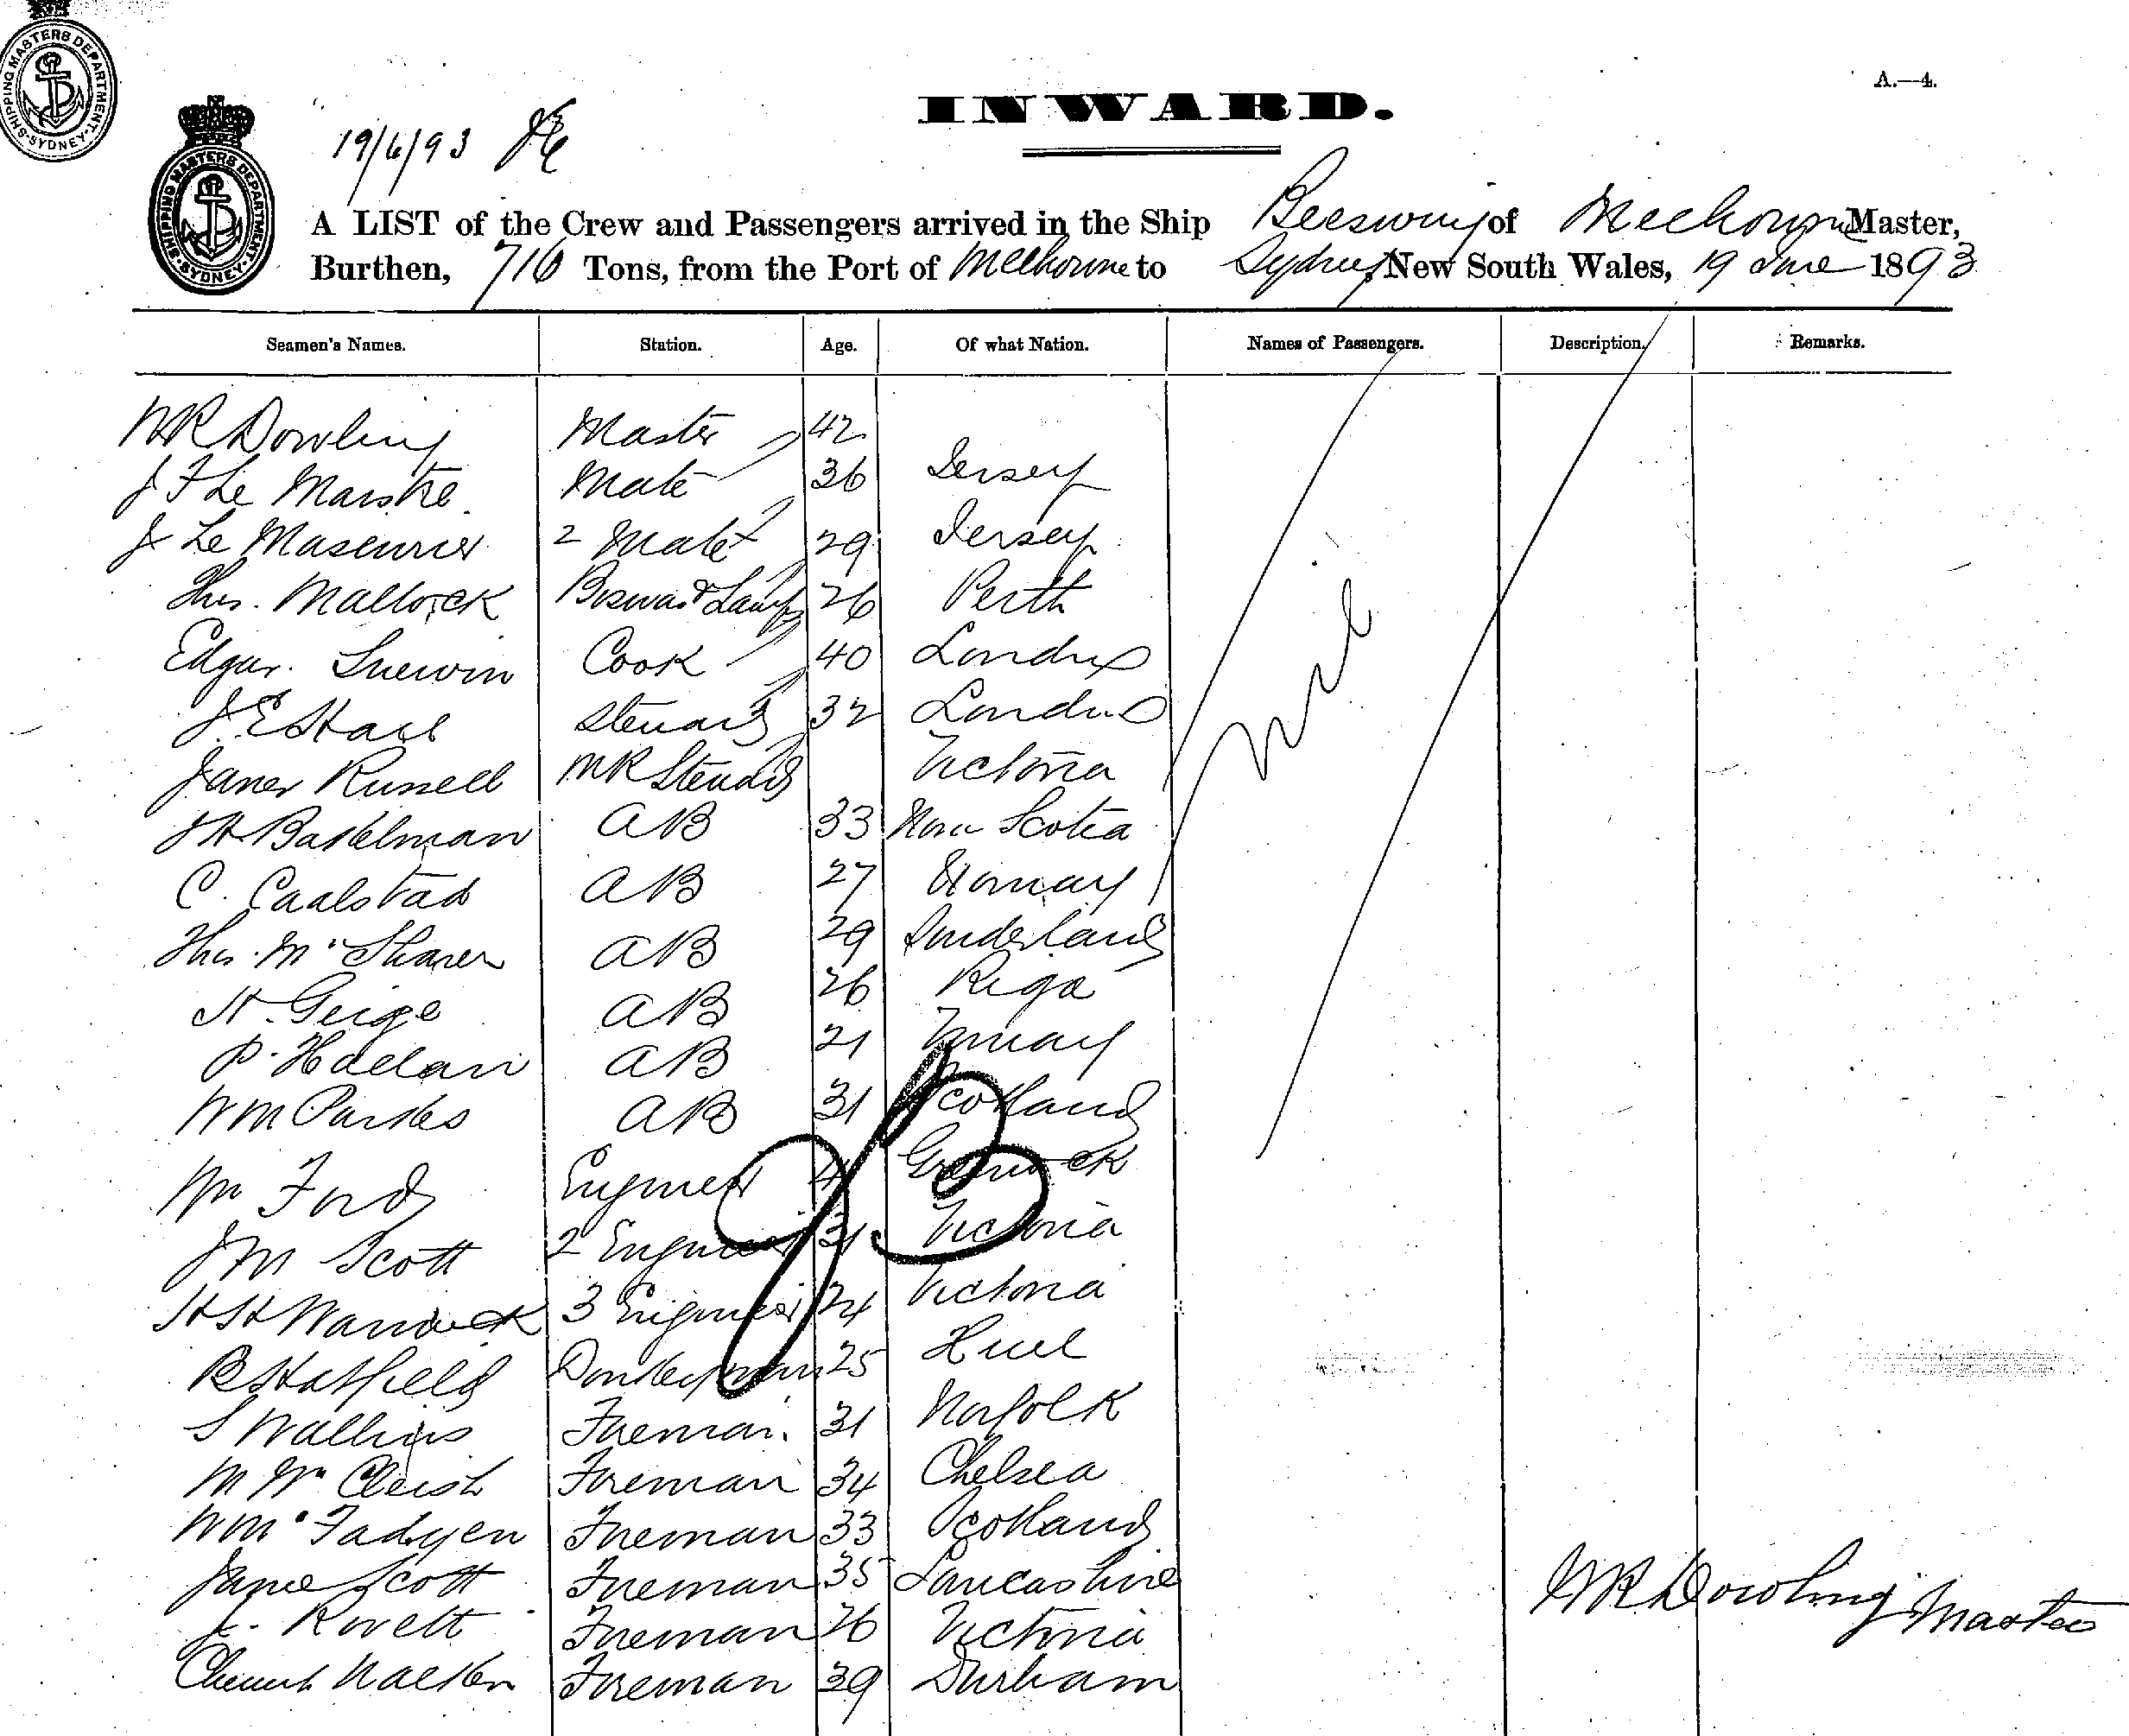 SHIPPING MASTERS DEPARTMENT. SYDNEY
A.—4.
INWARD.
19/6/93
SHIPPING MASTERS DEPARTMENT. SYDNEY
A LIST of the Crew and Passengers arrived in the Ship Beeswing of Melbourne Master,
Burthen, 716 Tons, from the Port of Melbourne to Sydney, New South Wales, 19 June 1893
Seamen's Names. Station. Age. Of what Nation. Names of Passengers. Description. Remarks.
WR Dowling Master 42
J F Le Maistre Mate 36 Jersey
J Le Masurier 2 Mate 29 Jersey
Thos. Mallock Boswan & Lamps 26 Perth
Edgar Cook 40 London
J. E Hall Steward 32 London
James Russell MR Steward Victoria
Nil
J H AB 33 Nova Scotia
C. Caalstad AB 27 Norway
Thos. Mc AB 29 Sunderland
H. Geige AB 26 Riga
P. AB 21 Norway
Wm Parkes AB 31 Scotland
Wm Ford Engineer Greenock
J M Scott 2 Engineer 31 Victoria
H H Warwick 3 Engineer 24 Victoria
B Hatfield Donkeyman 25 Hull
S Wallins Fireman 31 Norfolk
M Mc Cleish Fireman 34 Chelsea
W Mc Fadyen Fireman 33 Scotland
James Scott Fireman 35 Lancashire
J. Rovett Fireman 26 Victoria
Clement Walker Fireman 39 Durham
WR Dowling Master